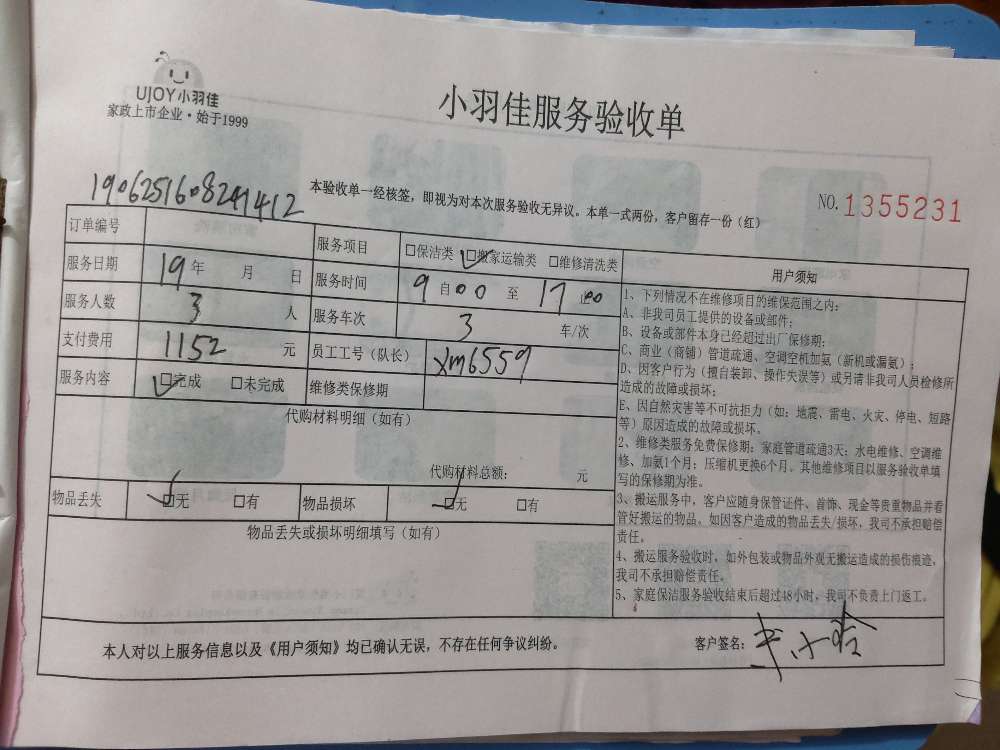 UJOY小羽佳
家政上市企业·始于1999
小羽佳服务验收单
本验收单一经核签，即视为对本次服务验收无异议。本单一式两份，客户留存一份（红）
NO.1355231
订单编号 1906251608241412
服务项目 □保洁类 □搬家运输类 □维修清洗类
服务日期 19年 月 日
服务时间 9 00 至 17 00
服务人数 3 人
服务车次 3 车/次
支付费用 1152 元
员工工号（队长） xm6559
服务内容 □完成 □未完成
维修类保修期
代购材料明细（如有）
代购材料总额： 元
物品丢失 □无 □有
物品损坏 □无 □有
物品丢失或损坏明细填写（如有）
用户须知
1、下列情况不在维修项目的维保范围之内：
A、非我司员工提供的设备或部件；
B、设备或部件本身已经超过出厂保修期；
C、商业（商铺）管道疏通、空调空机加氨（新机或漏氨）；
D、因客户行为（擅自装卸、操作失误等）或另请非我司人员检修所
造成的故障或损坏；
E、因自然灾害等不可抗拒力（如：地震、雷电、火灾、停电、短路
等）原因造成的故障或损坏。
2、维修类服务免费保修期：家庭管道疏通3天；水电维修、空调维
修、加氨1个月；压缩机更换6个月。其他维修项目以服务验收单填
写的保修期为准。
3、搬运服务中，客户应随身保管证件、首饰、现金等贵重物品并看
管好搬运的物品。如因客户造成的物品丢失/损坏，我司不承担赔偿
责任。
4、搬运服务验收时，如外包装或物品外观无搬运造成的损伤痕迹，
我司不承担赔偿责任。
5、家庭保洁服务验收结束后超过48小时，我司不负责上门返工。
本人对以上服务信息以及《用户须知》均已确认无误，不存在任何争议纠纷。
客户签名：